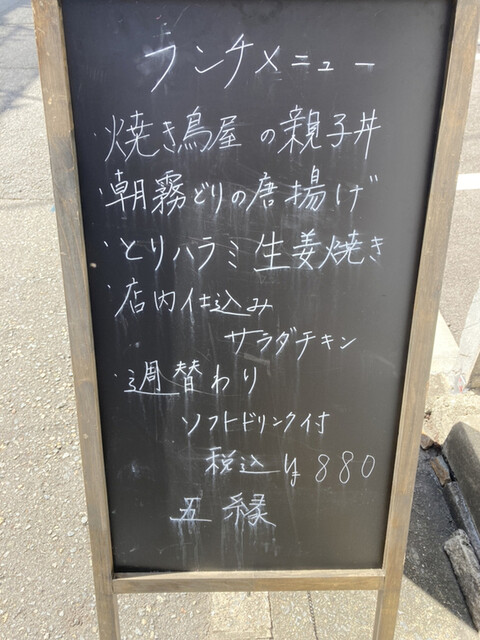 ランチメニュー
・焼き鳥屋の親子丼
・朝霧どりの唐揚げ
・とりハラミ生姜焼き
・店内仕込み
サラダチキン
・週替わり
ソフトドリンク付
税込¥880
五縁